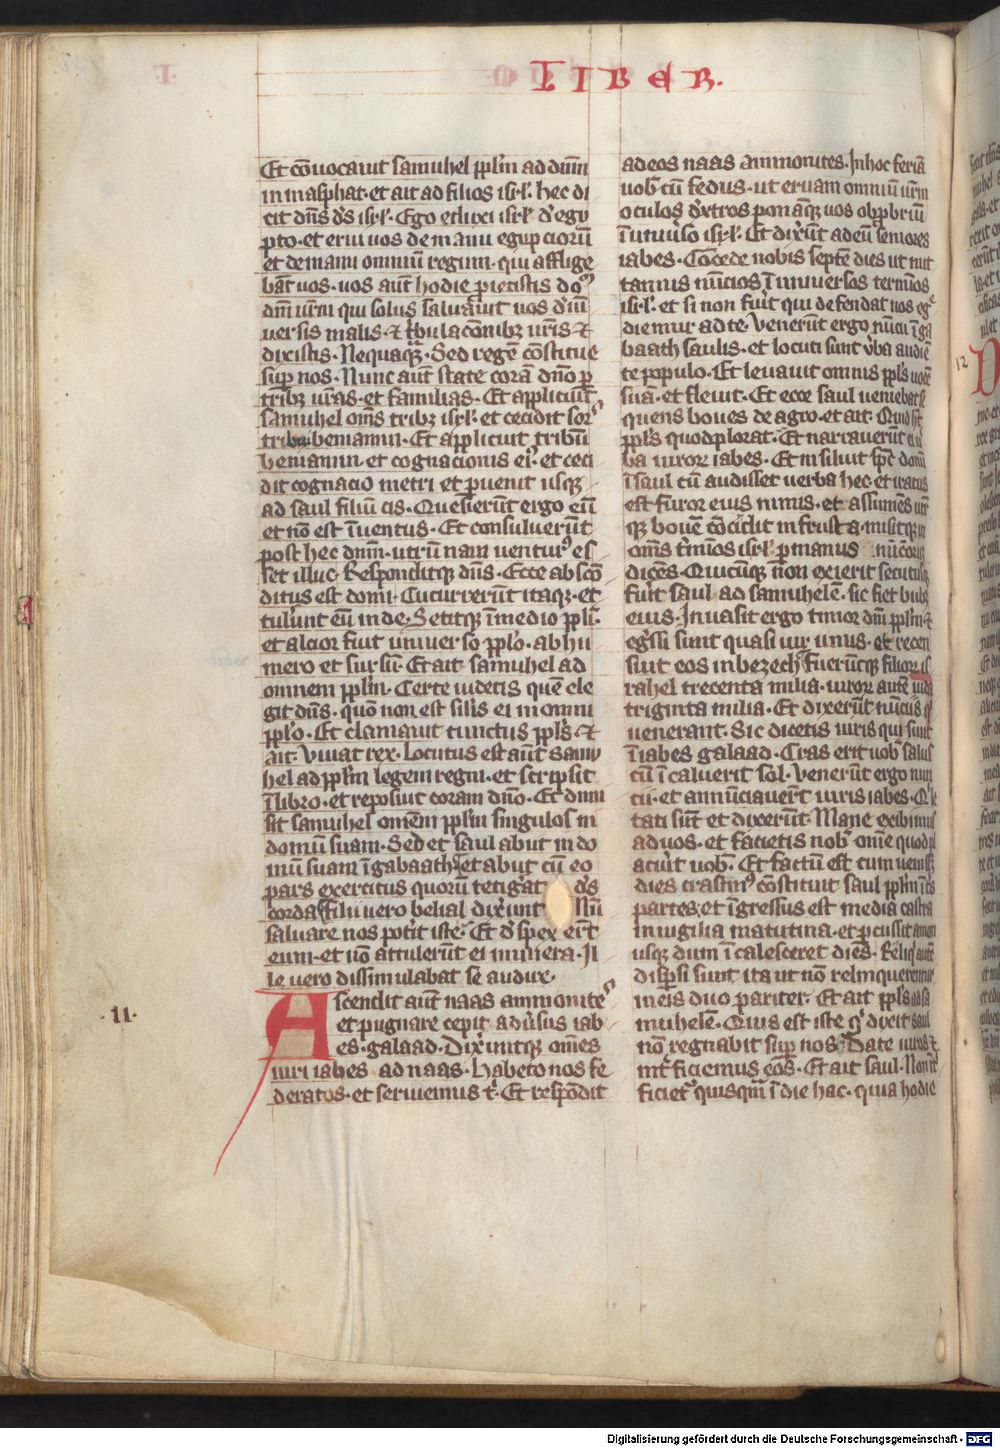 LIBER.
Et cōuocauit samuhel ppl̄m ad dnm̄
in masphat · et ait ad filios isr̄l · hec di
cit dn̄s d̄s isr̄l · Ego eduxi isr̄l d̄ egy
pto · et erui uos de manu egypciorū
et de manu omniū regum · qui afflige
bāt uos · uos aūt hodie proiecistis do
dm̄ ur̄m qui solus saluauit uos d̄ uī
uersis malis · et tribulacōnibꝫ ur̄is · et
dixistis · Nequaqꝫ · Sed regē cōstitue
sup nos · Nunc aūt state corā dn̄o p
tribꝫ ur̄as · et familias · Et applicuit
samuhel om̄s tribꝫ isr̄l · et cecidit sors
tribus beniamin · Et applicuit tribū
beniamin · et cognacionis ei⁹ · et ceci
dit cognacio metri et puenit usqꝫ
ad saul filiū cis · Quesierūt ergo eū
et nō est īuentus · Et consuluerūt
post hec dnm̄ · utrū nam uentur⁹ es
set illuc · Responditqꝫ dn̄s · Ecce abscō
ditus est domi · Cucurrerūt itaqꝫ · et
tul̄unt eū inde · Stetitqꝫ īmedio ppl̄i ·
et alcior fuit uniuerso ppl̄o · ab hu
mero et sursū · Et ait samuhel ad
omnem ppl̄m · Certe uidetis quē ele
git dn̄s · quō non est sil̄is ei in omni
ppl̄o · Et clamauit cunctus ppl̄s · et
ait · Viuat rex · Locutus est aūt samu
hel ad ppl̄m legem regni · et scripsit
ī libro · et reposuit coram dn̄o · Et dimi
sit samuhel omēm ppl̄m singulos in
domū suam · Sed et saul abiit in do
mū suam ī gabaath · et abiit cū eo
pars exercitus quorū tetig̓at d̄s
corda · filii uero belial dix̓unt Nū
saluare nos pot̓it iste · Et d̓spexer̄t
eum · et nō attulerūt ei munera · Il
le uero dissimulabat se audire ·
· 11 ·
Ascendit aūt naas ammonites
et pugnare cepit adūsus iab
es · galaad · Dix̓untqꝫ om̄es
uiri iabes ad naas · Habeto nos fe
deratos · et seruiemus t̓ · Et respōdit
ad eos naas ammonites · In hoc feriā
uob̄ cū fedus · ut eruam omniū ur̄m
oculos d̓xtros ponāqꝫ uos obprbriū
ī uniu̓so isr̄l · Et dix̓unt ad eū seniores
iabes · Cōcede nobis septē dies ut mit
tamus nūcios ī uniuersos termīos
isr̄l · et si non fuīt qui defendat nos eg̓
diemur ad te · Venerūt ergo nūcii ī ga
baath saulis · et locuti sunt ūba audiē
te populo · Et leuauit omnis ppl̄s uocē
suā · et fleuit · Et ecce saul ueniebat se
quens boues de agro · et ait · Quid h̄t
ppl̄s quod plorat · Et narrauerūt ei ū
ba uiror̄ iabes · Et insiluit sp̄c domī
ī saul cū audisset uerba hec · et iratus
est furor eius nimis · et assumēs utr̄
qꝫ bouē cōcidit in frusta · misitqꝫ in
om̄s t̓mīos isr̄l p manus nūcioꝝ
dicēs · Quicūqꝫ non exierit secutusqꝫ
fuīt saul ad samuhelē · sic fiet bubꝫ
eius · Inuasit ergo timor dn̄i ppl̄m · et
eg̓ssi sunt quasi uir unus · et recen
suit eos in bezech · Fuerūtqꝫ filior̄ is
rahel trecenta milia · uiror̄ autē iuda
triginta milia · Et dixerūt nūciis q̓
uenerant · Sic dicetis uiris qui sunt
ī iabes galaad · Cras erit uob̄ salus
cū ī caluerit sol · Venerūt ergo nun
cii · et annūciauer̄t uiris iabes · Q̓ le
tati sūt et dixerūt · Mane exibimus
ad uos · et facietis nob̄ om̄e quod pl
acu̓it uob̄ · Et factū est cum uenisset
dies crastin⁹ cōstituit saul ppl̄m ī tr̄s
partes · et īgressus est media castra
in uigilia matutina · et pcussit amon
usqꝫ dum ī calesceret dies · Reliq̓ autē
disp̓si sunt ita ut nō relinquerentur
in eis duo pariter · Et ait ppl̄s ad sa
muhelē · Quis est iste q̓ dixit saul
nō regnabit sup nos · Date uiros et
int̓ficiemus eōs · Et ait saul · Non int̓
ficiet̓ quisqm̄ ī die hac · quia hodie
12
Digitalisierung gefördert durch die Deutsche Forschungsgemeinschaft - DFG